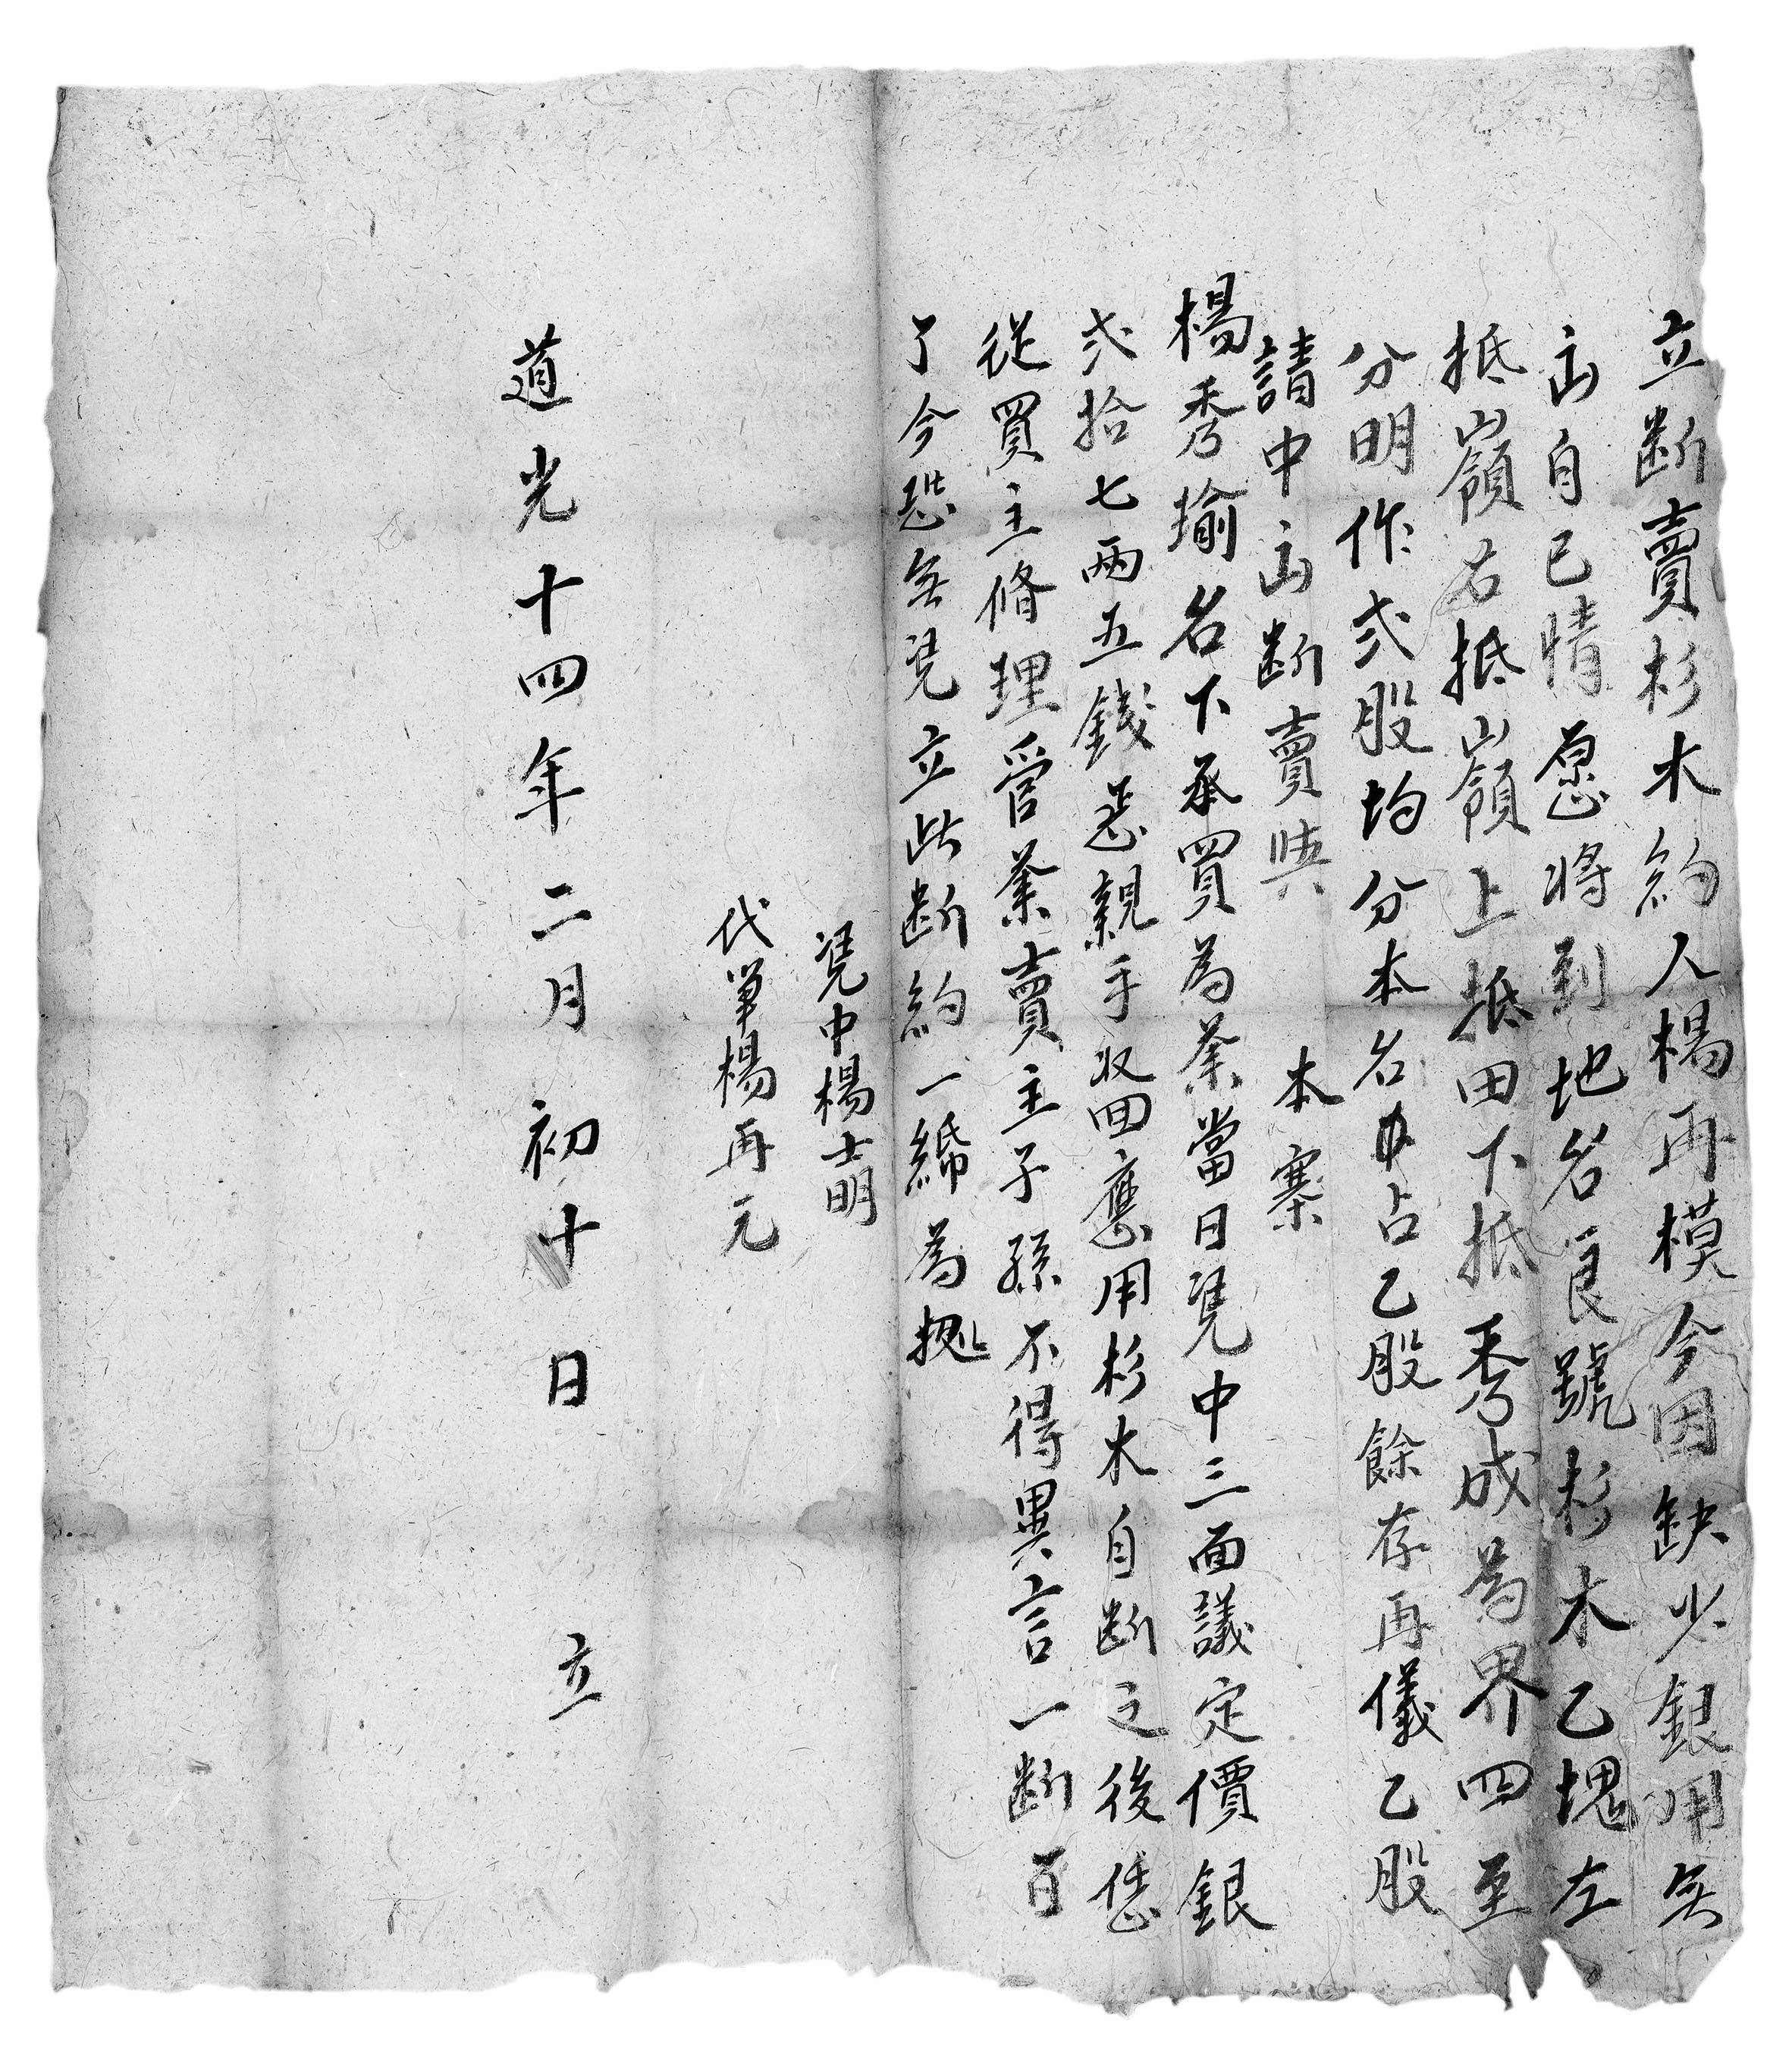 立断賣杉木約人楊再模今因缺少銀用無
出自己情愿將到地名良號杉木乙塊左
抵嶺右抵嶺上抵田下抵秀成為界四至
分明作弍股均分本名占乙股餘存再儀乙股
請中出断賣與
本寨
楊秀瑜名下承買為業當日凭中三面議定價銀
弍拾七兩五錢親手收回應用杉木自断之後恁
從買主修理管業賣主子孫不得異言一断百
了今恐無凭立此断約一緍為據
凭中楊士明
代筆楊再元
道光十四年二月初十日立